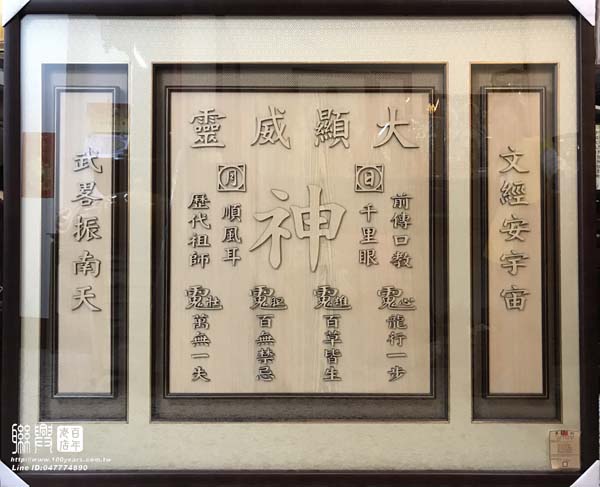 大顯威靈
文經安宇宙
前傳口教
日
千里眼
神
月
順風耳
歷代祖師
龍行一步
百草皆生
百無禁忌
萬無一失
武畧振南天
聯興
百年老店
http://www.100years.com.tw
Line ID:047774890